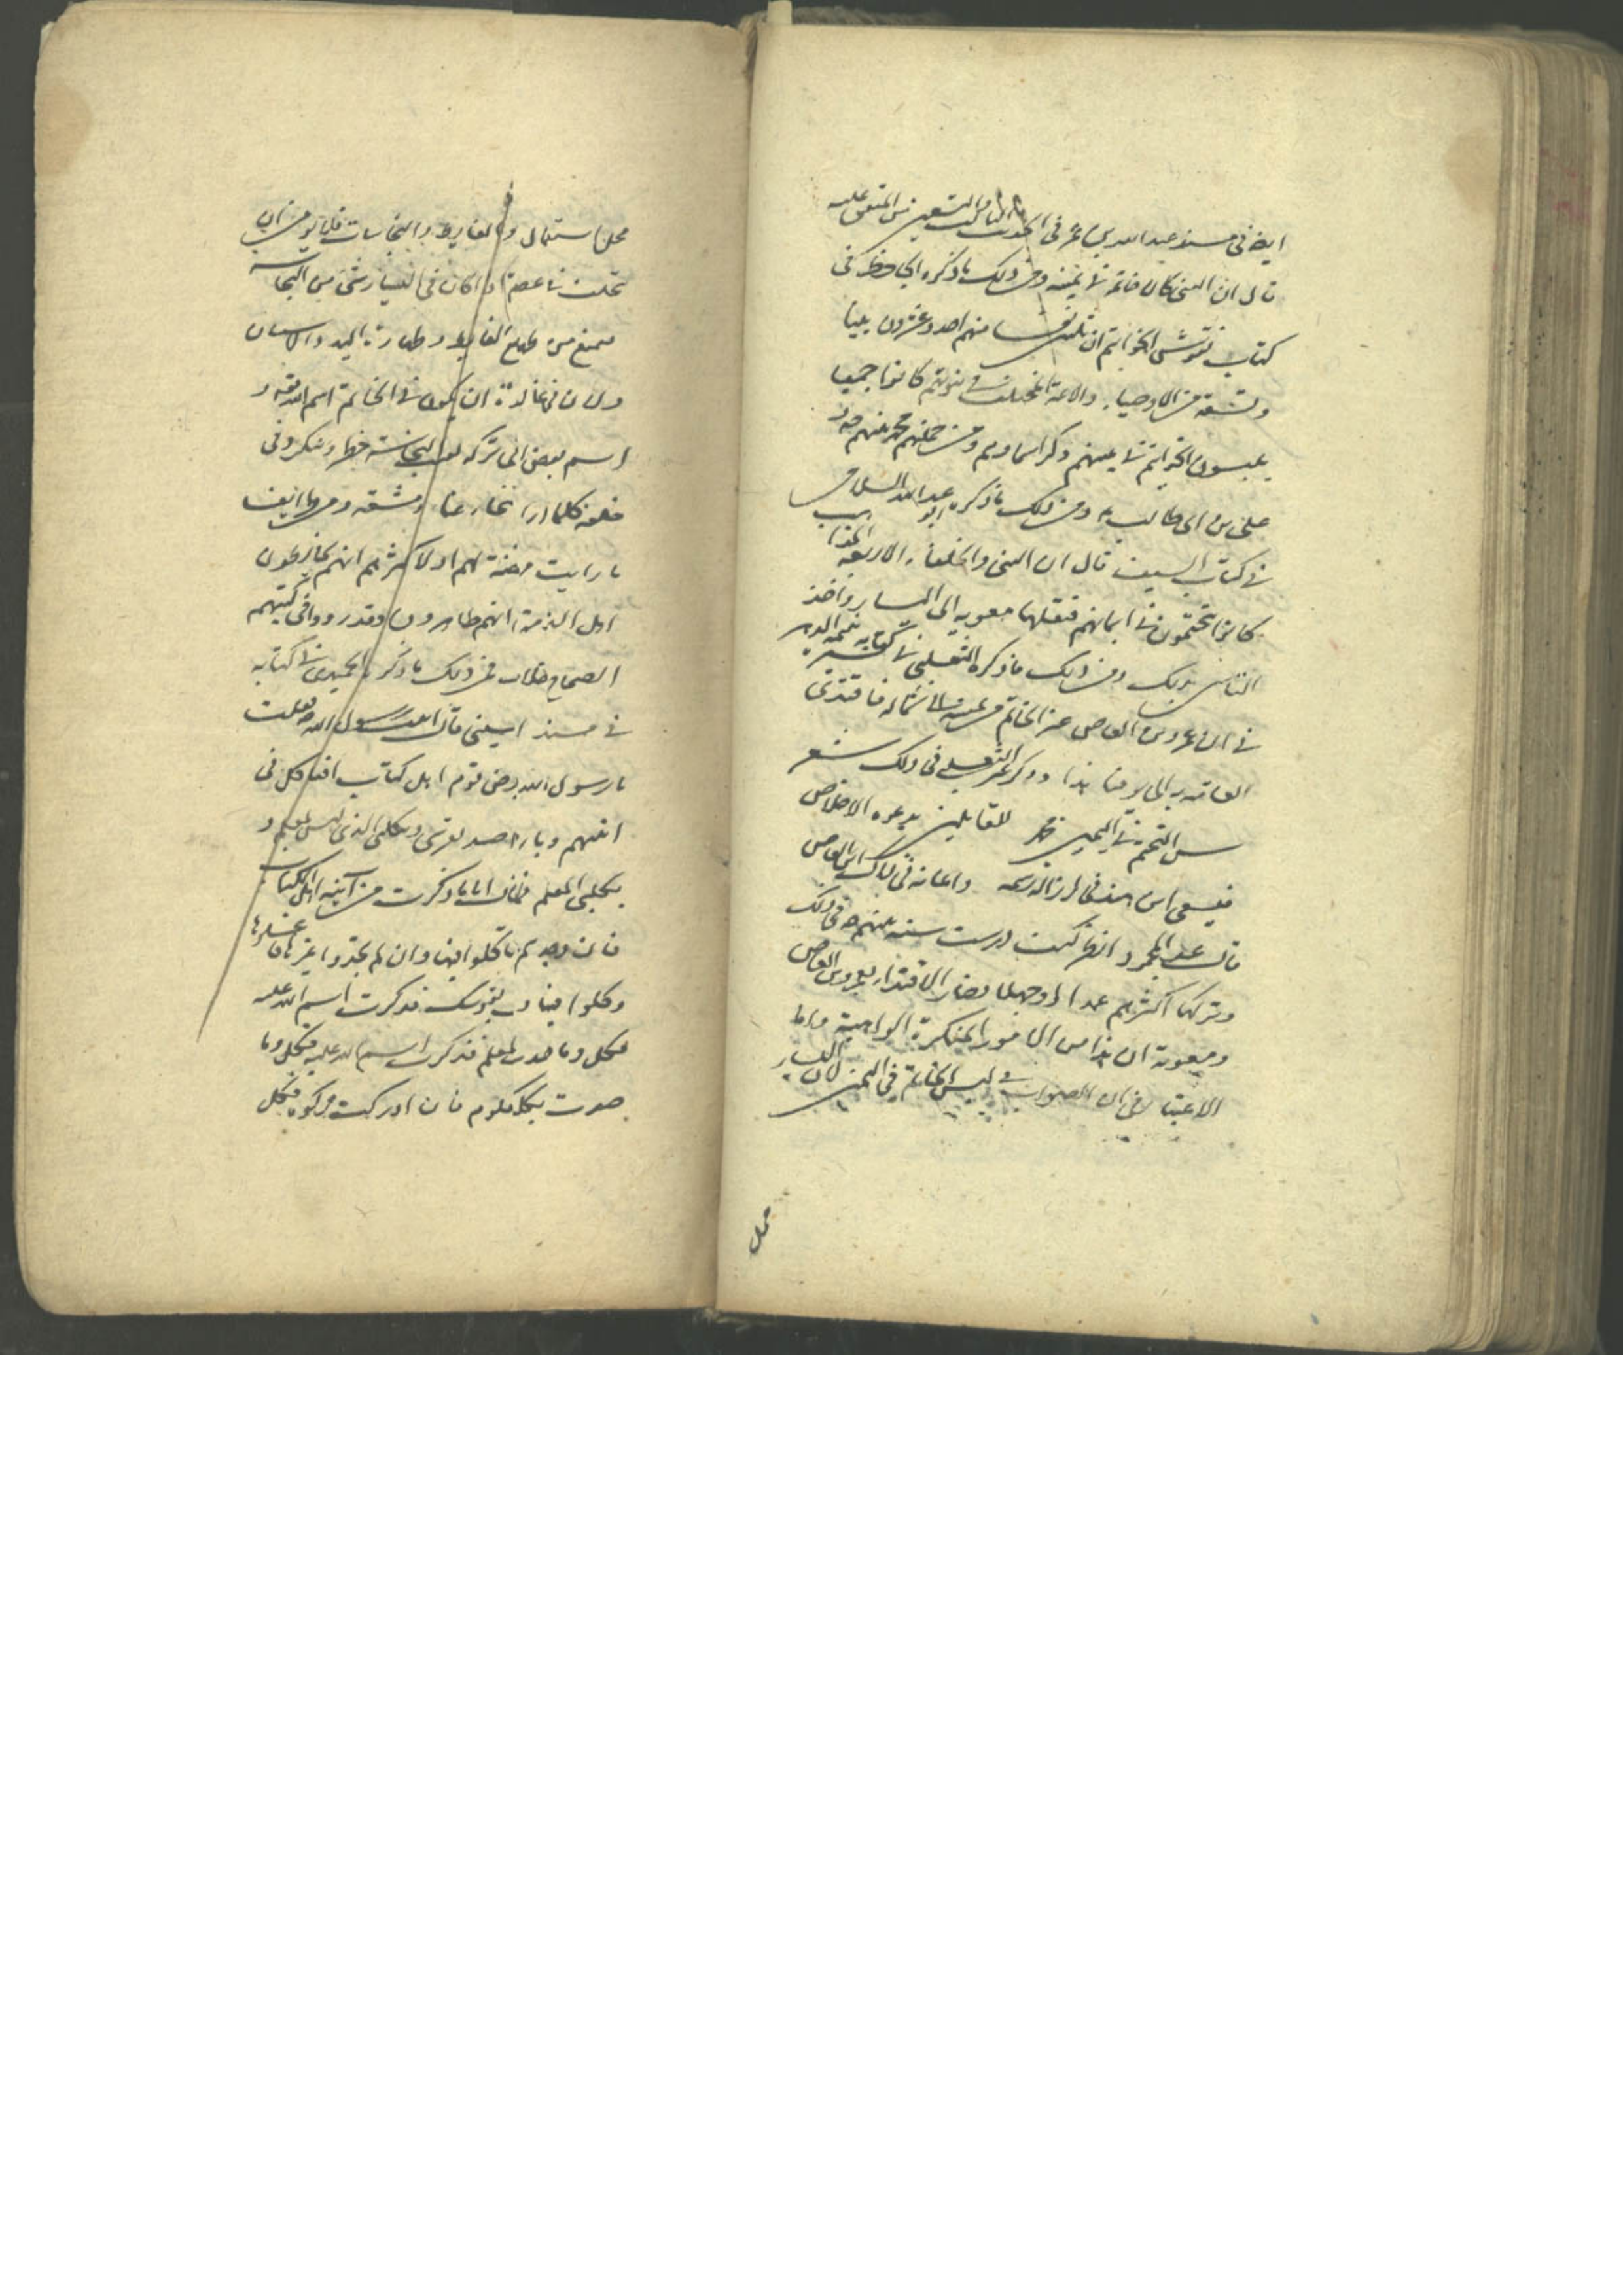 ايضا فى مسند عبد الله بن عمر فى الحديث الثامن والتسعين من المتفق عليه
قال ان النبى كان خاتمه فى يمينه ومن ذلك ما ذكره الجاحظ فى
كتاب نقوش الخواتيم ان ثلثين نفسا منهم احد وعشرون نبيا
وتسعة من الاوصياء والائمة المختلف فى نبوتهم كانوا جميعا
يلبسون الخواتيم فى يمينهم وذكر اسماءهم ومن جملتهم محمد نبيهم ص و
على بن ابى طالب ع ومن ذلك ما ذكره ابو عبد الله السلامى
فى كتاب السيف قال ان النبى والخلفاء الاربعة
كانوا يتختمون فى ايمانهم فنقلها معويه الى اليسار واخذ
الناس بذلك ومن ذلك ما ذكره الثعلبى فى كتابه يتيمة الدهر
فى ان عمرو بن العاص عزل الخاتم من يمينه الى شماله فاقتدى
العامة به الى يومنا هذا وذكر الثعلبى فى ذلك شعر
سن التختم فى اليمين محمد للقايلين بدعوه الاخلاص
فسعى ابن هند فى ازاله رسمه واعانه فى ذاك ابن العاص
قال عبد المحمود انظر كيف درست سنة نبيهم ص فى ذلك
وتركها اكثرهم عمدا او جهلا وصار الاقتداء بعمرو بن العاص
ومعوية ان هذا من الامور المنكرة الواهية واما
الاعتبار فى ان الصواب فى لبس الخاتم فى اليمين لان اليسار
محل
محل استعمال والغايط والنجاسات فلا يؤمن ان
تخلف فى اذا كان فى اليسار شئ من النجاسة
يمنع من الغايط وطهارة اليد والانسان
ولان فى عادة ان يكون فى الخاتم اسم الله تعالى و
اسم بعض تركه النجاسة خطر ومنكر وفى
خلعه كلما اراد عناء ومشقة ومن طرايف
ما رايت لهم او لاكثرهم انهم
اهل الذمة انهم طاهرون وقد رووا فى كتبهم
الصحاح خلاف فمن ذلك ما ذكره الحميدى فى كتابه
فى مسند قال اتيت رسول الله ص فقلت
يا رسول الله بارض قوم اهل كتاب افناكل فى
انيتهم وبارض صيد بقوسى وبكلبى الذى ليس بمعلم و
بكلبى المعلم فقال اما ما ذكرت من آنية اهل الكتاب
فان وجدتم فلا تاكلوا فيها وان لم تجدوا غيرها فاغسلوها
وكلوا فيها وما بقوسك فذكرت اسم الله عليه
فكل وما صدت بمعلم فذكرت اسم الله عليه فكل وما
صدت بكلبك فان ادركت ذكوته فكل